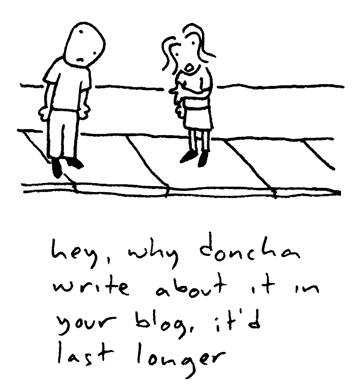 hey, why doncha
write about it in
your blog, it'd
last longer